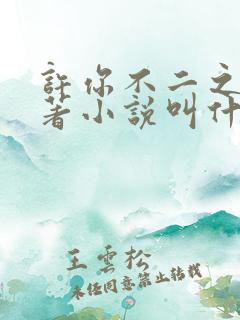 許你不二之
著小說叫什
王雲松
未经同意禁止转载